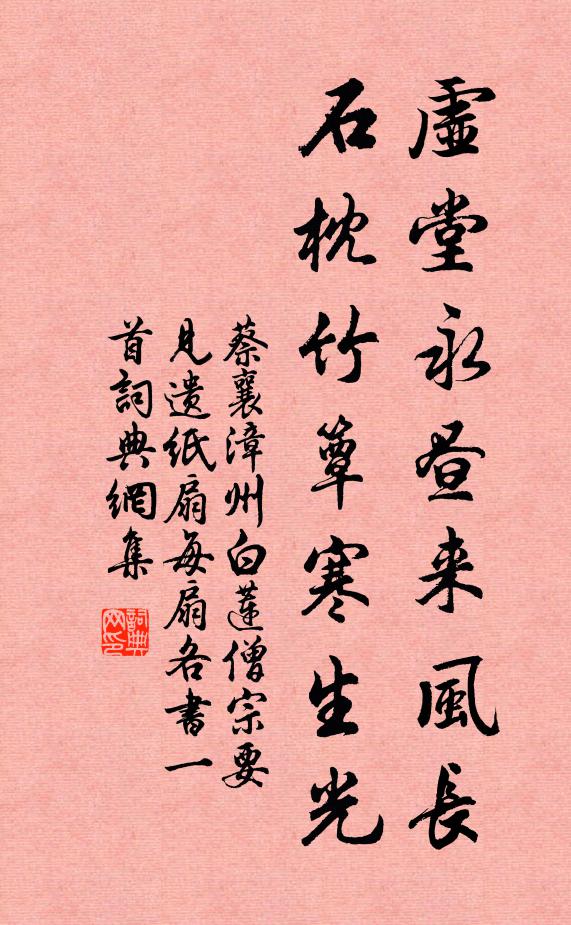 虚堂永昼来風長
石枕竹簟寒生光
蔡襄漳州白蓮僧宗要
見遗紙扇每扇各書一
首詞典網集
詞典网印